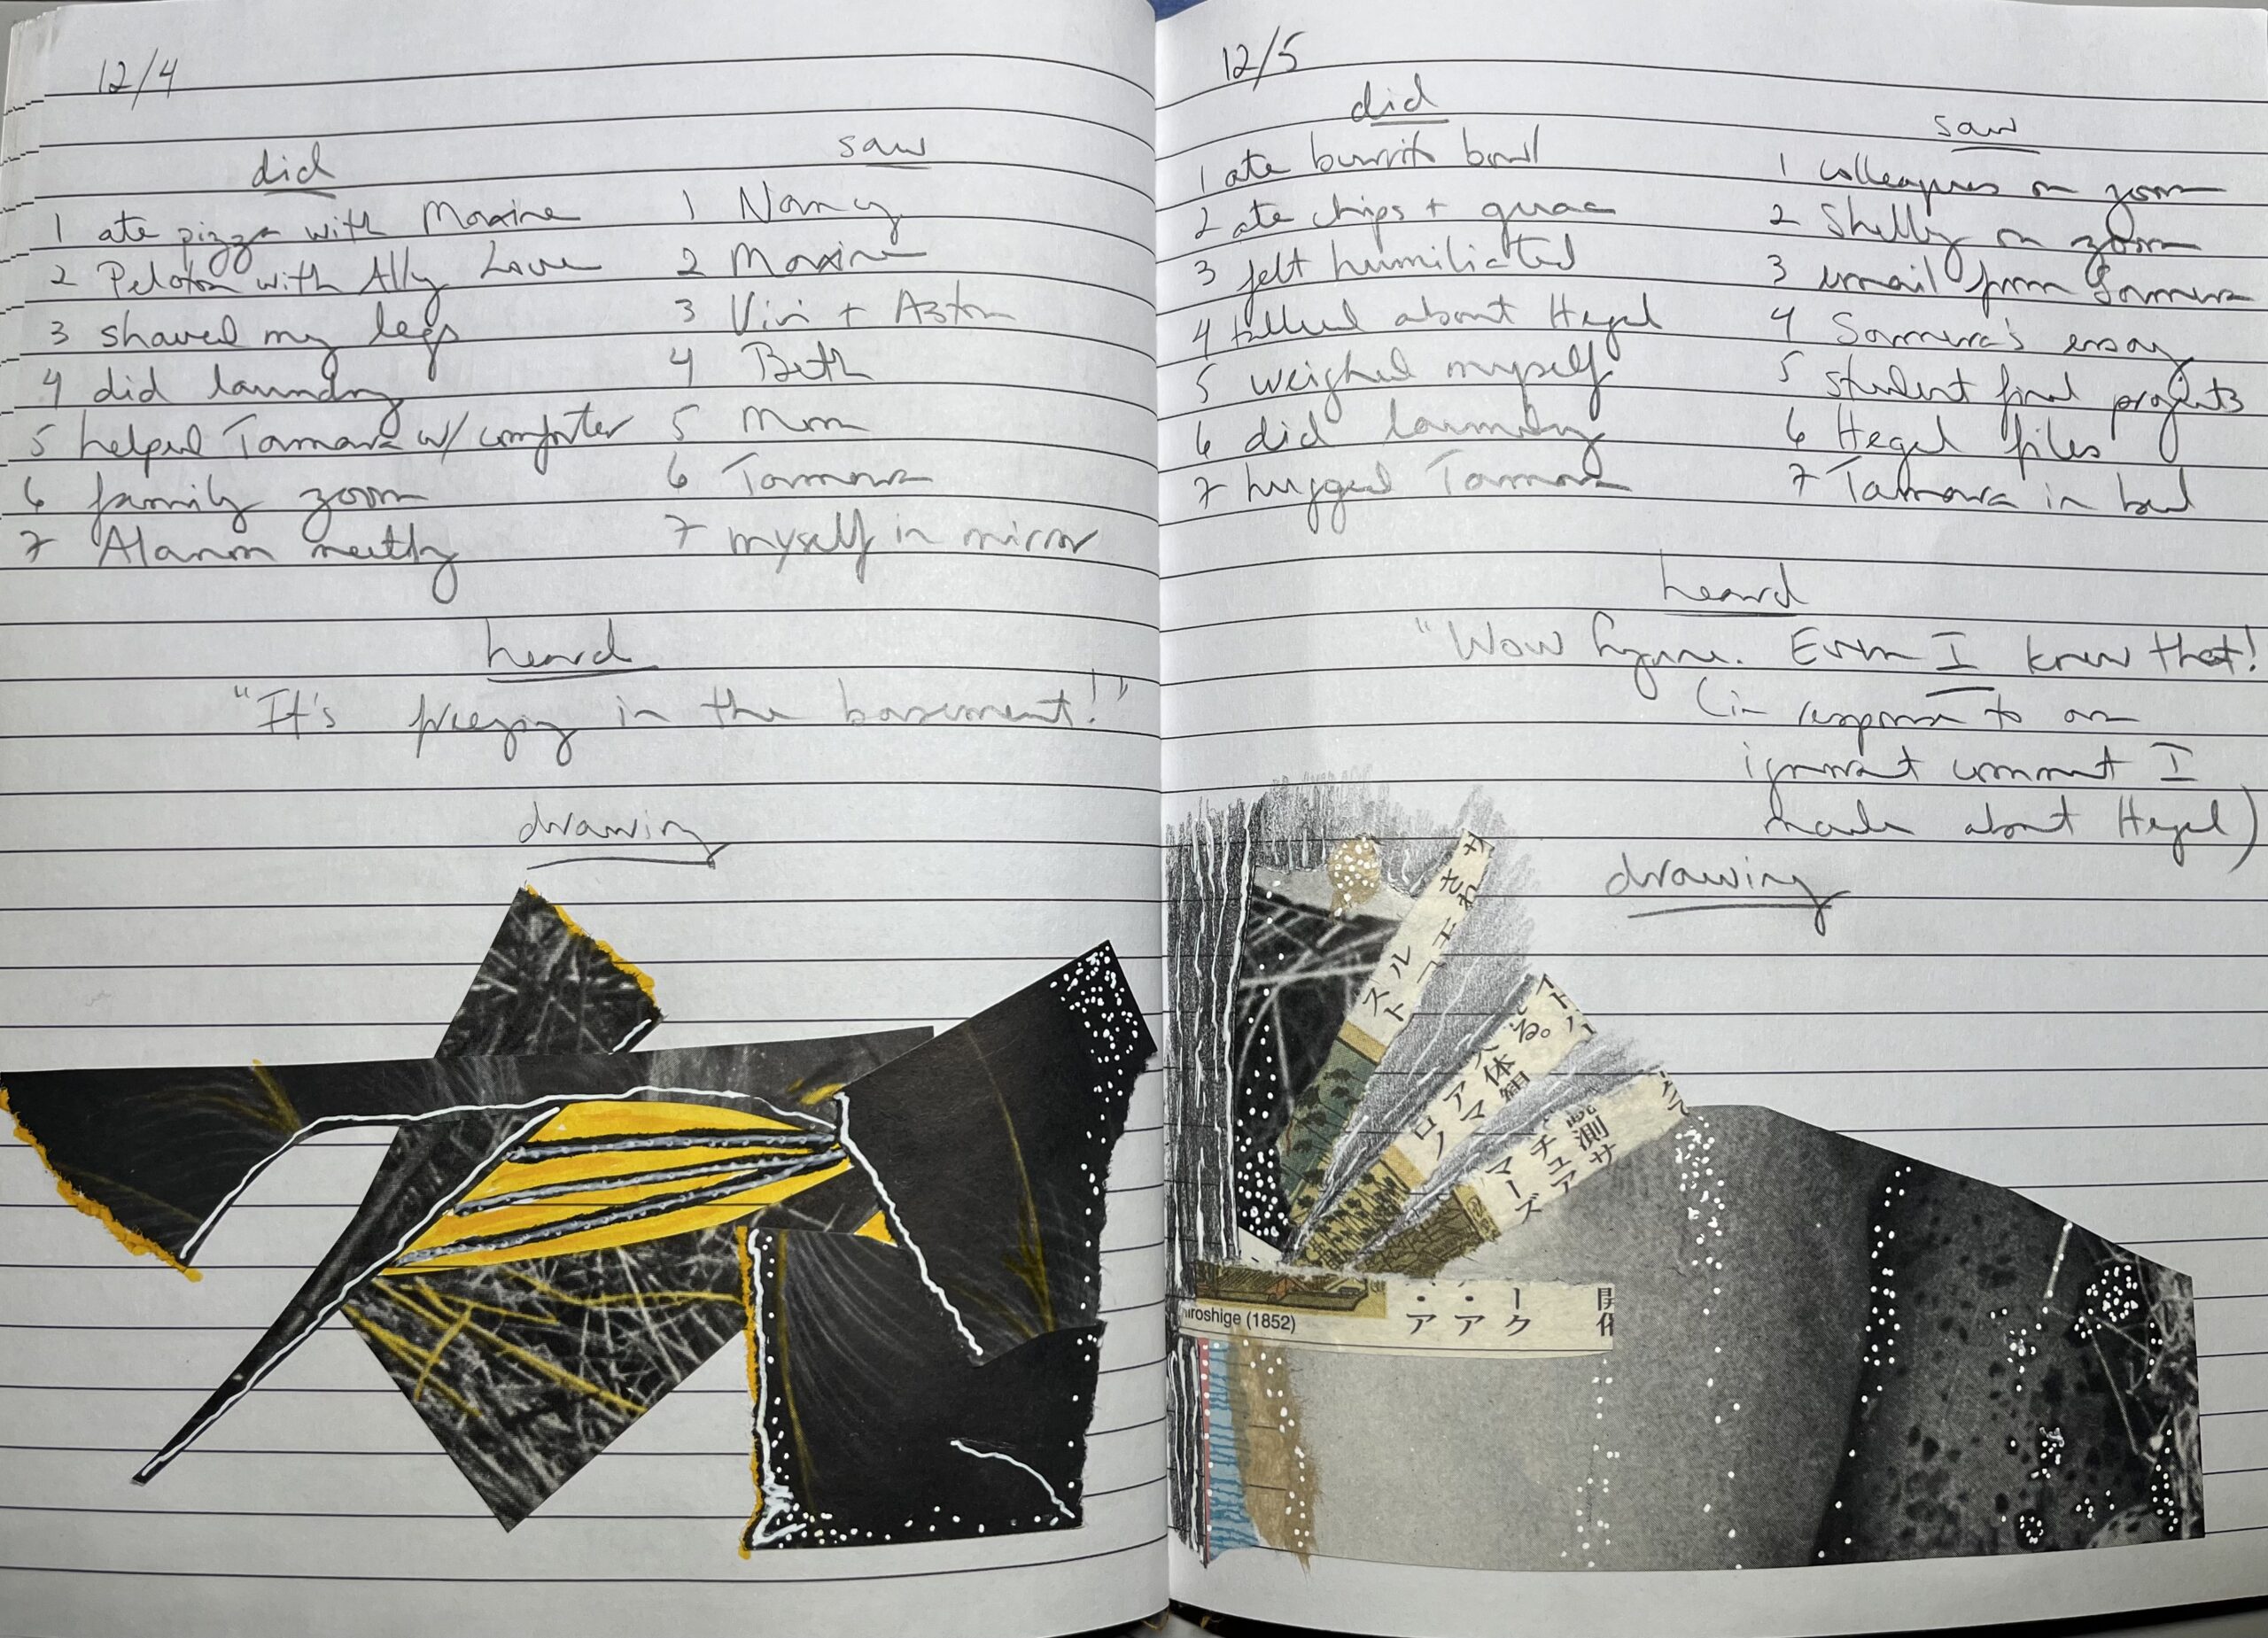 12/4
did
1 ate pizza with Maxine
2 Peloton with Ally Love
3 shaved my legs
4 did laundry
5 helped Tamara w/ computer
6 family zoom
7 Alanon meeting
saw
1 Nancy
2 Maxine
3 Vivi + Aston
4 Beth
5 Mom
6 Tamara
7 myself in mirror
heard
"It's freezing in the basement!"
drawing
12/5
did
1 ate burrito bowl
2 ate chips + guac
3 felt humiliated
4 talked about Hegel
5 weighed myself
6 did laundry
7 hugged Tamara
saw
1 colleagues on zoom
2 Shelly on zoom
3 email from
4 essay
5 student final projects
6 Hegel files
7 Tamara in bed
heard
"Wow Lynne. Even I knew that!
(in response to an
ignorant comment I
made about Hegel)
drawing
さわ
スト
ルエ「
る。
人体観
アマ
測サ
チュア
マーズ
iroshige (1852)
・ア
・ア
ーク
開化